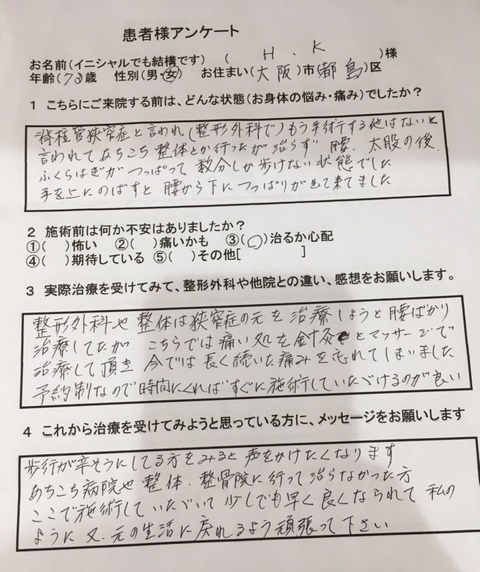 患者様アンケート
お名前(イニシャルでも結構です) ( H . K )様
年齢(73歳 性別(男・女) お住まい(大阪)市(都島)区
1 こちらにご来院する前は、どんな状態(お身体の悩み・痛み)でしたか?
脊柱官狭窄症と言われ(整形外科で)もう手術する他はないと
言われてあちこち整体とか行ったが治らず 腰、太股の後、
ふくらはぎがつっぱって 数分しか歩けない状態でした
手を上にのばすと腰から下につっぱりが出て来てました
2 施術前は何か不安はありましたか?
①( )怖い ②( )痛いかも ③(○)治るか心配
④( )期待している ⑤( )その他[ ]
3 実際治療を受けてみて、整形外科や他院との違い、感想をお願いします。
整形外科や 整体は狭窄症の元を治療しようと腰ばかり
治療してたが こちらでは痛い処を針灸とマッサージで
治療して頂き 今では長く続いた痛みを忘れてしまいました
予約制なので時間にくればすぐに施術していただけるのが良い
4 これから治療を受けてみようと思っている方に、メッセージをお願いします
歩行が辛そうにしてる方をみると声をかけたくなります
あちこち病院や整体、整骨院に行って治らなかった方
ここで施術していただいて少しでも早く良くなられて 私の
ように又、元の生活に戻れるよう頑張って下さい